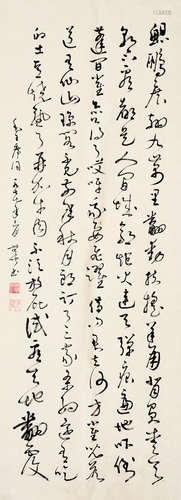 鲲鹏展翅九万里翻动扶摇羊角背负青天
朝下看都是人间城郭炮火连天弹痕遍地吓倒
蓬间雀怎么得了哎呀我要飞跃借问君去何方雀儿答
道有仙山琼阁不见前年秋月朗订了三家条约还有吃
的土豆烧熟了再加牛肉不须放屁试看天地翻覆
毛主席词